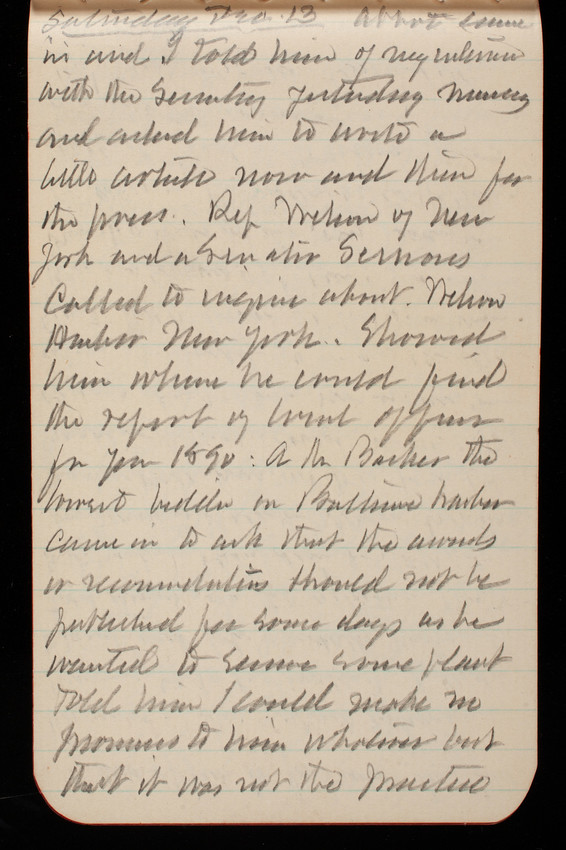 Saturday Dec. 13 Abbot came
in and I told him of my interview
with the Secretary yesterday morning
and asked him to write a
little article now and then for
the press. Rep Nelson of New
York and a Senator
Called to inquire about. Wilson
Harbor New York. Showed
him where he could find
the report of local officer
for year 1890: A Mr Barker the
lowest bidder on Baltimore harbor
came in to ask that the awards
or recommendations should not be
published for some days as he
wanted to secure some plant
Told him I could make no
promises to him whatever but
that it was not the practice